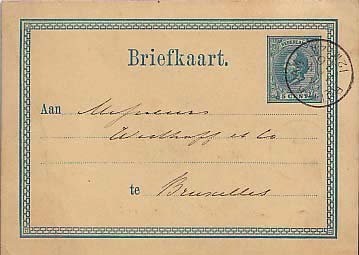 Briefkaart.
NEDERLAND
5 CENT
Aan Messieurs
Westhoff et Co
te Bruxelles